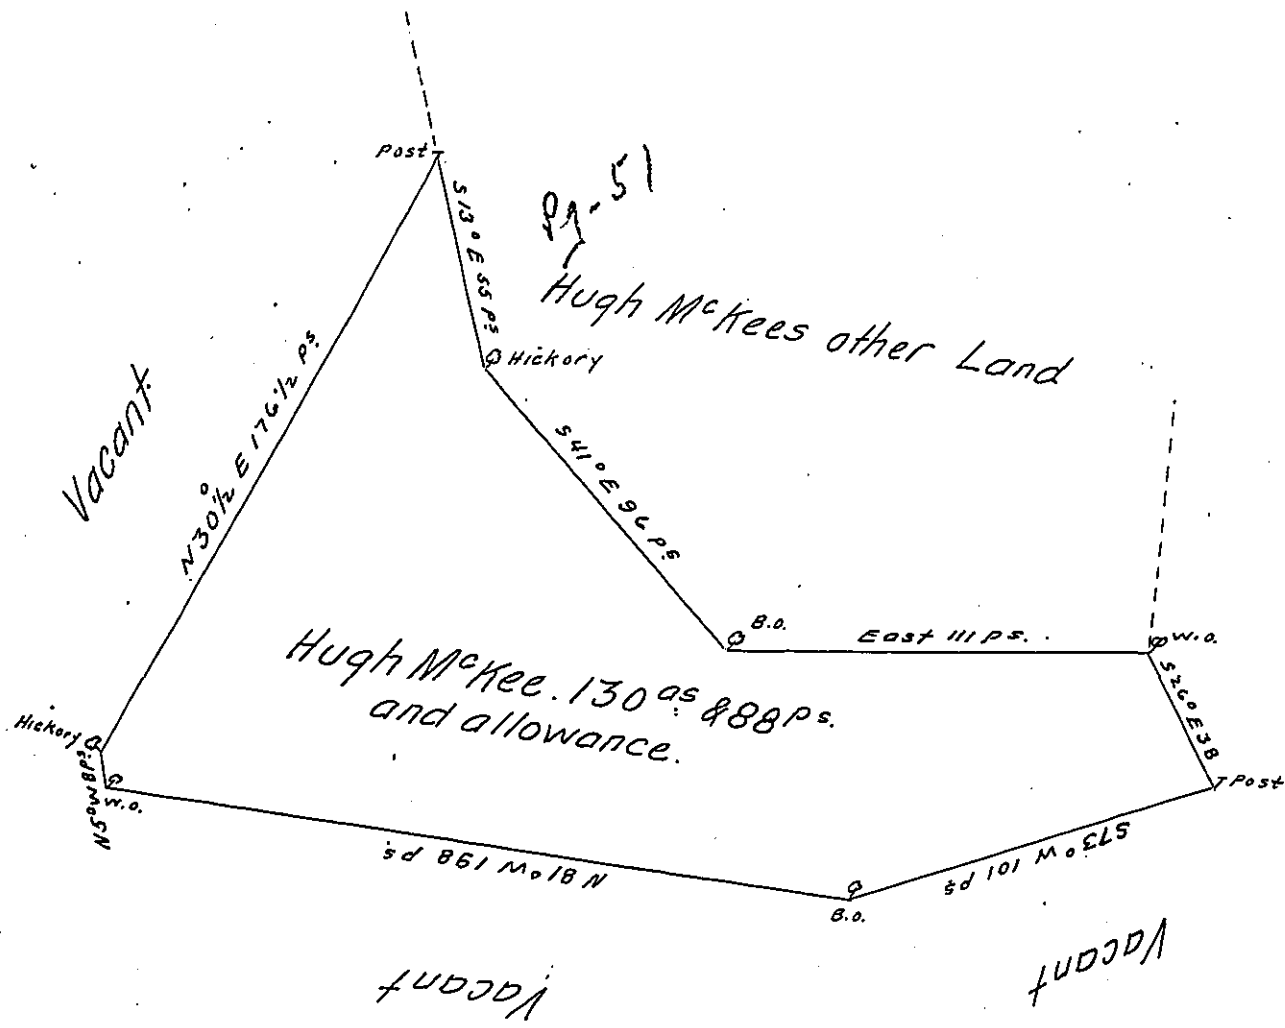 Post
S13°E 55 ps
Pg-51
Hugh McKees other Land
Hickory
Vacant
N30½° E 176½ ps.
S41°E 96 ps
B.O.
East 111 ps.
W.O.
S26°E 38
Post
Hugh McKee. 130 as. & 88 ps.
and allowance.
Hickory
N5°W 8 ps.
W.O.
N81°W 198 ps
B.O.
S73°W 101 ps
Vacant
Vacant